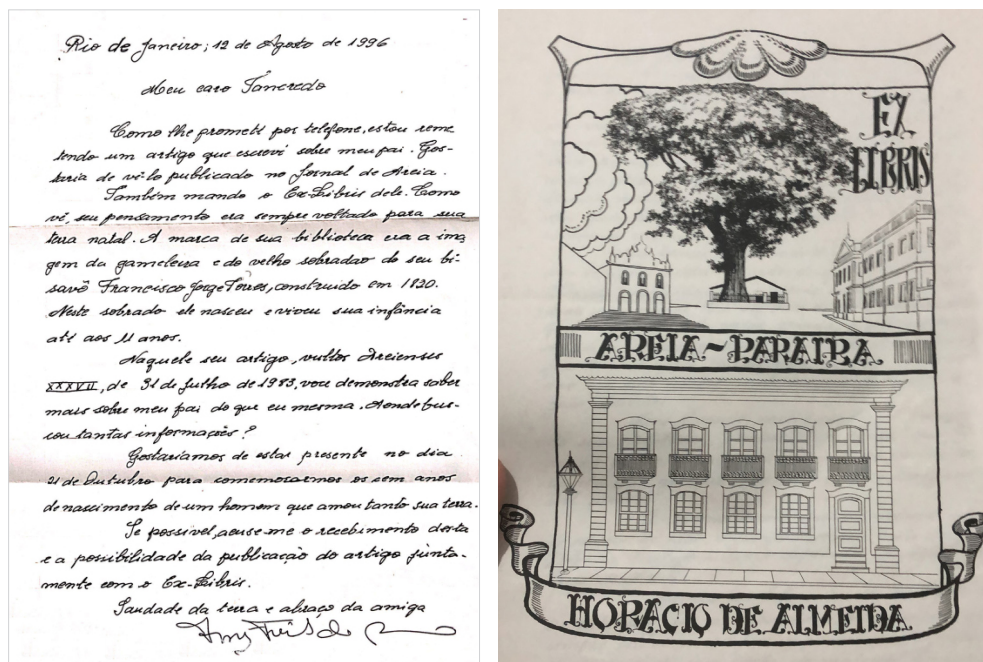 Rio de Janeiro, 12 de Agosto de 1996
Meu caro Tancredo
Como lhe prometi por telefone, estou reme
tendo um artigo que escrevi sobre meu pai. Gos-
taria de vê-lo publicado no Jornal de Areia.
Também mando o Ex-Libris dele. Como
vê, seu pensamento era sempre voltado para sua
terra natal. A marca de sua biblioteca era a ima
gem da gameleira e do velho sobradão do seu bi-
savô Francisco Jorge Torres, construido em 1820.
Neste sobrado ele nasceu e viveu sua infância
até aos 11 anos.
Naquele seu artigo, vultos Areienses
XXXVII, de 31 de Julho de 1983, voce demonstra saber
mais sobre meu pai do que eu mesma. Aonde bus-
cou tantas informações?
Gostariamos de estar presente no dia
21 de Outubro para comemorarmos os cem anos
de nascimento de um homem que amou tanto sua terra.
Se possivel, acuse-me o recebimento desta
e a possibilidade da publicação do artigo junta-
mente com o Ex-Libris.
Saudade da terra e abraço da amiga
EX
LIBRIS
AREIA~PARAIBA
HORACIO DE ALMEIDA